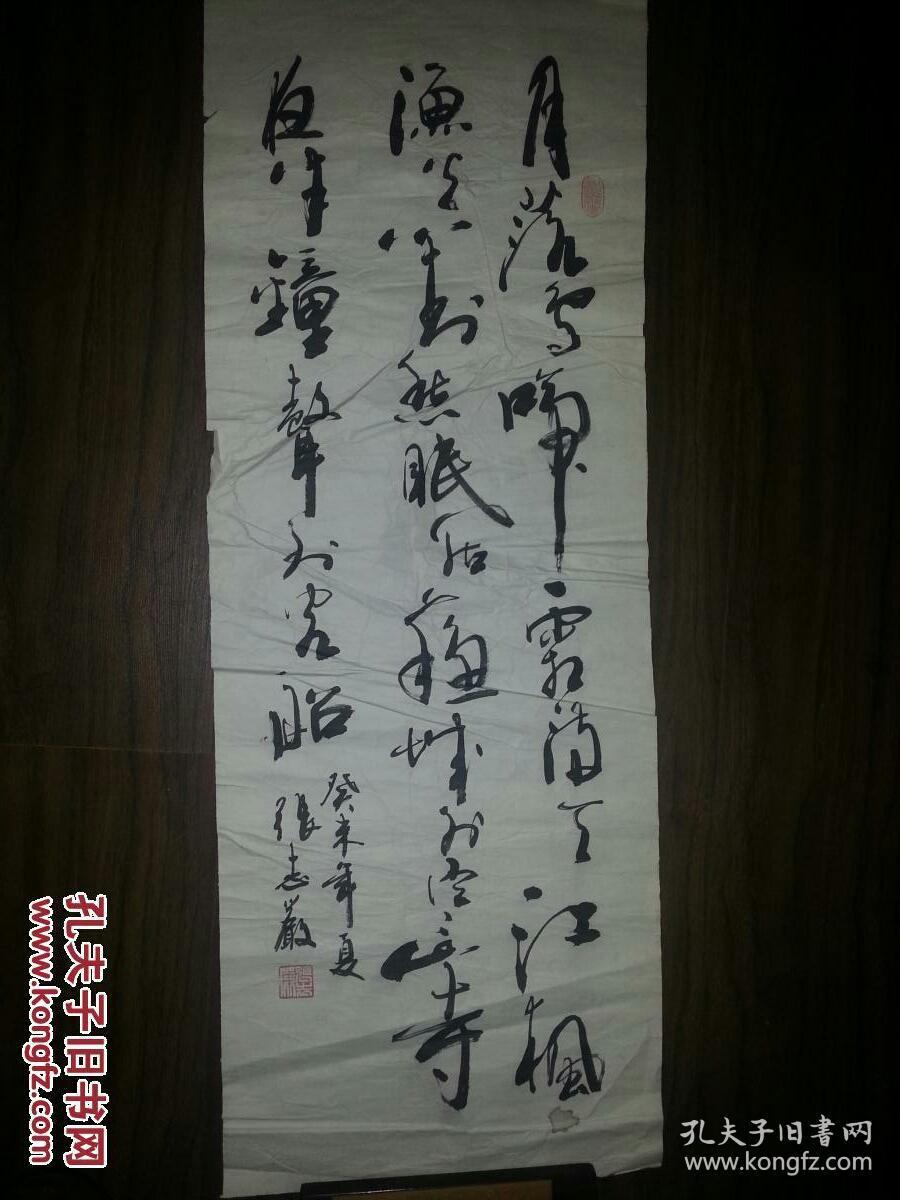 月落烏啼霜滿天江楓
漁火對愁眠姑蘇城外寒山寺
夜半鐘聲到客船
癸未年夏
張志嚴
孔夫子旧书网
www.kongfz.com
孔夫子旧書网
www.kongfz.com